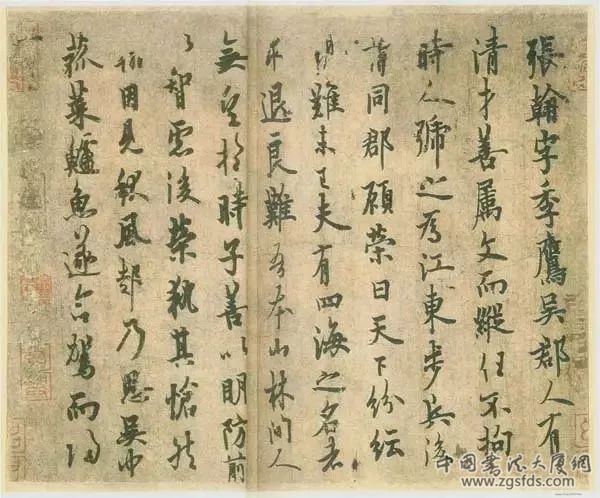 張翰字季鷹吳郡人有
清才善屬文而縱任不拘
時人號之為江東步兵後
謂同郡顧榮曰天下紛紜
禍難未已夫有四海之名者
求退良難吾本山林間人
無望於時子善以明防前
以智慮後榮執其愴然
翰因見秋風起乃思吳中
菰菜鱸魚遂命駕而歸
中国书法大厦網
www.zgsfds.com